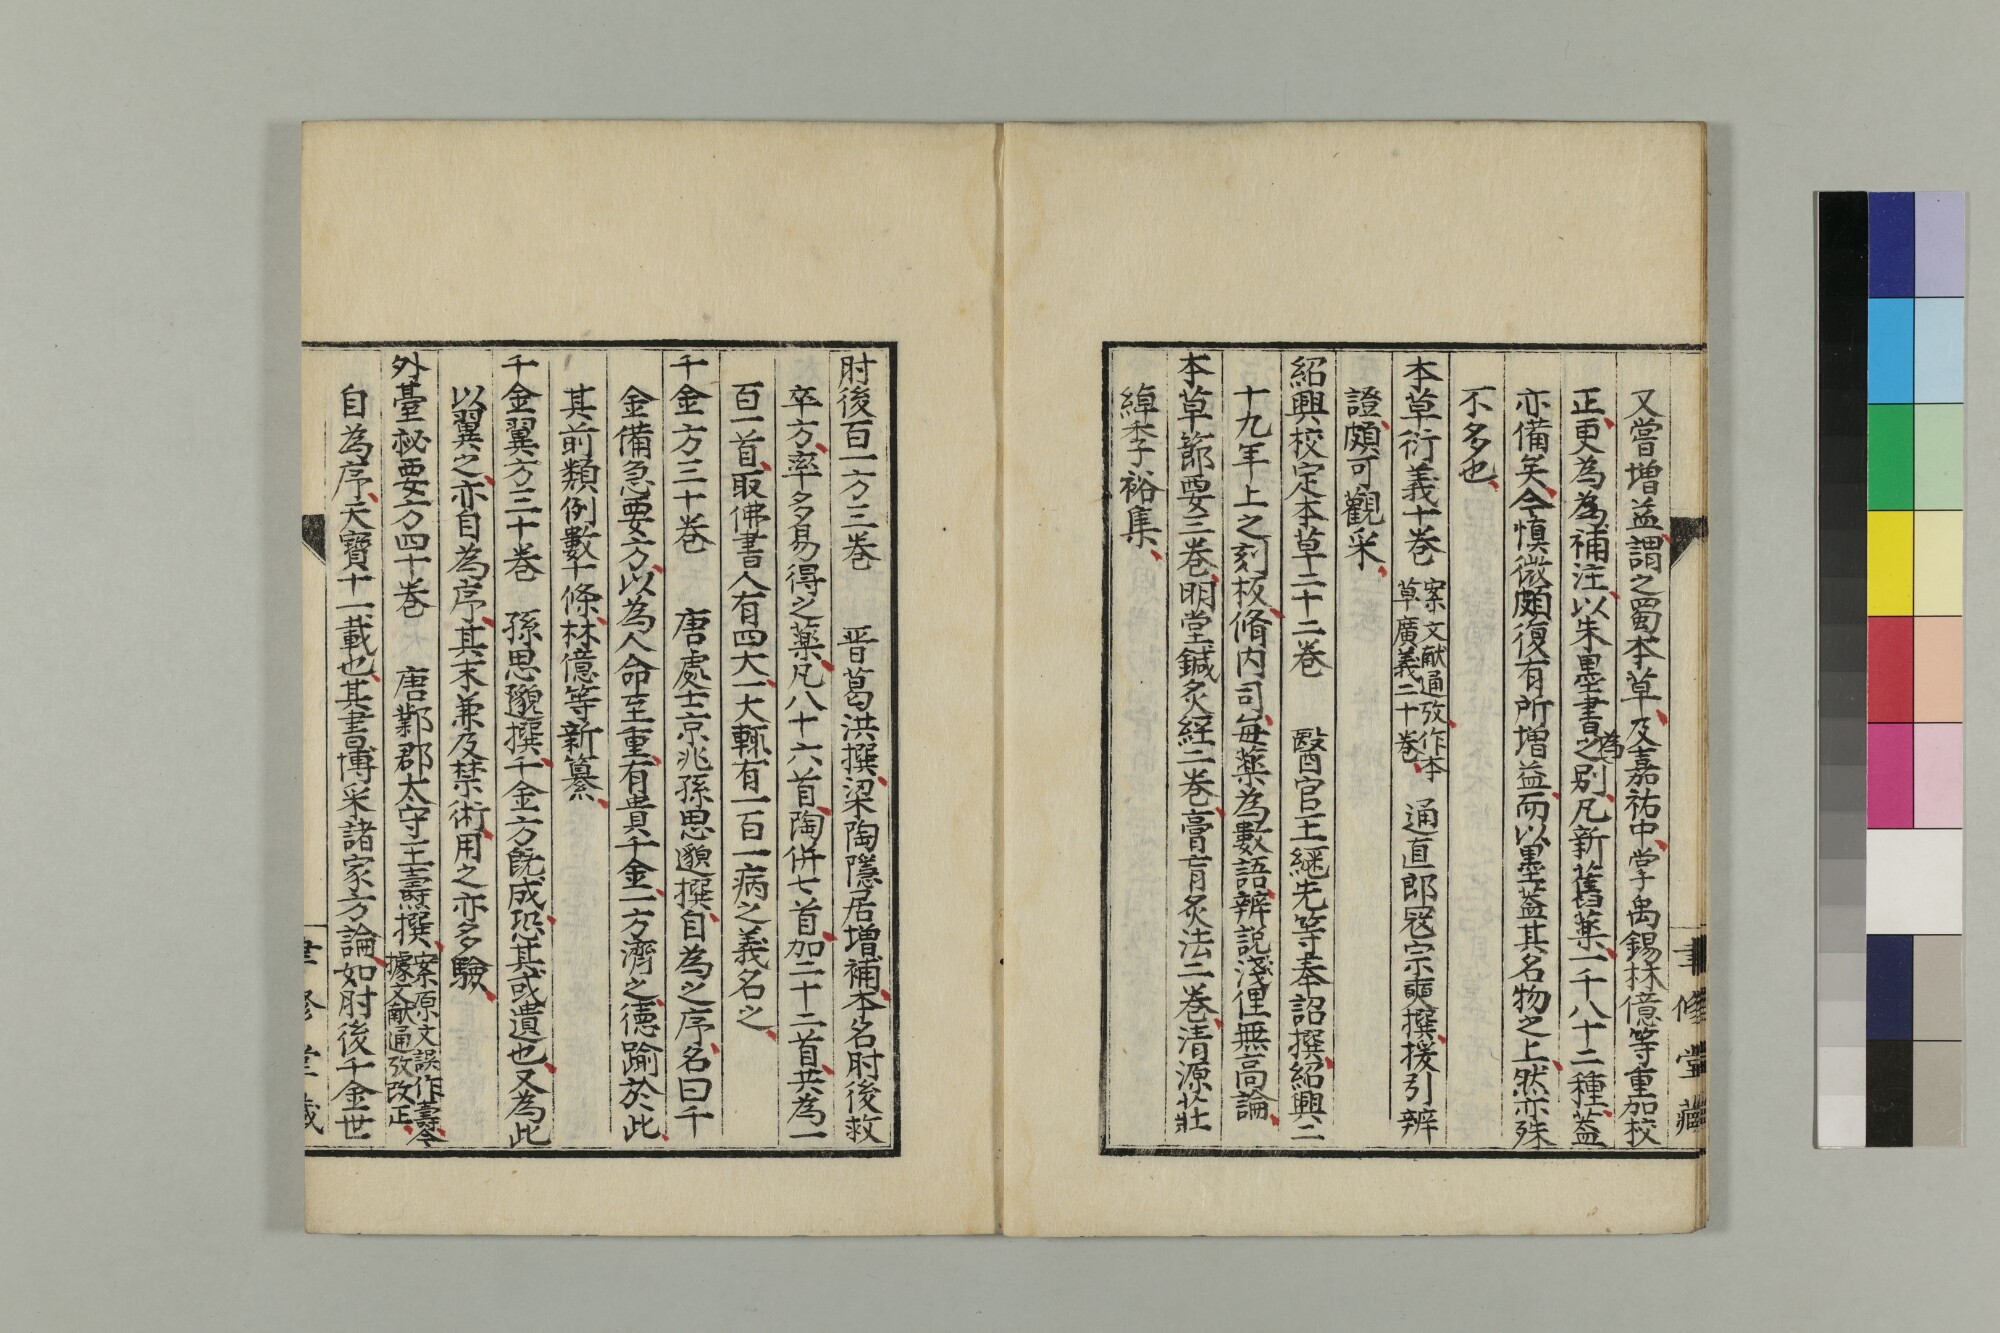 又嘗増益謂之蜀本草及嘉祐中掌禹錫林億等重加校
正更為為補注以朱墨書之為別凡新舊薬一千八十二種蓋
亦備矣今慎微頗復有所増益而以墨蓋其名物之上然亦殊
不多也
本草衍義十巻 案文献通攷作本草廣義二十巻 通直郎冦宗奭撰援引辨
證頗可觀采
紹興校定本草二十二巻 醫官王継先等奉詔撰紹興二
十九年上之刻板脩内司毎薬為數語辨説淺俚無高論
本草節要三巻明堂鍼灸経二巻膏肓灸法二巻清源莊
綽季裕集
聿修堂藏
肘後百一方三巻 晋葛洪撰梁陶隠居増補本名肘後救
卒方率多易得之薬凡八十六首陶併七首加二十二首共為一
百一首取佛書人有四大一大輒有一百一病之義名之
千金方三十巻 唐處士京兆孫思邈撰自為之序名曰千
金備急要方以為人命至重有貴千金一方濟之徳踰於此
其前類例數十條林億等新纂
千金翼方三十巻 孫思邈撰千金方既成恐其或遺也又為此
以翼之亦自為序其末兼及禁術用之亦多驗
外臺秘要方四十巻 唐鄴郡太守王燾撰 案原文誤作壽今據文献通攷改正
自為序天寶十一載也其書博采諸家方論如肘後千金世
聿修堂藏